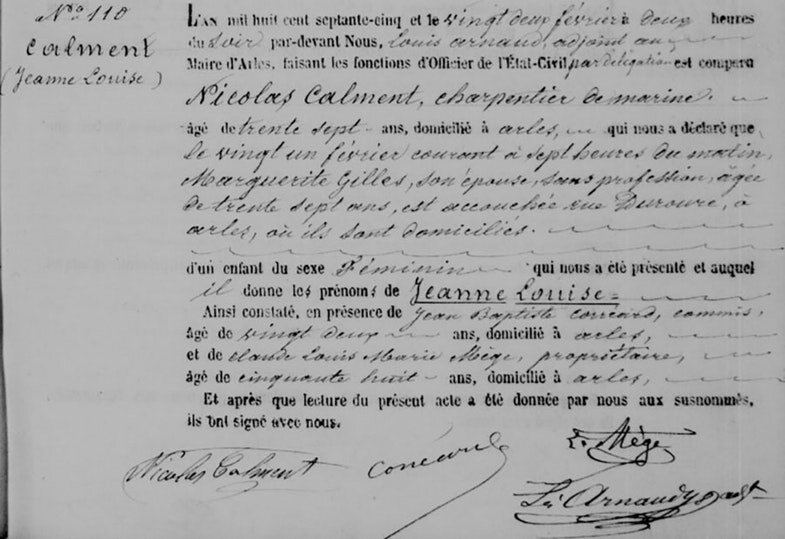 N.º 110
Calment
(Jeanne Louise)
L'AN mil huit cent septante-cinq et le vingt deux février à deux heures
du Soir par-devant Nous, Louis arnaud, adjoint au
Maire d'Arles, faisant les fonctions d'Officier de l'État-Civil, par délégation est comparu
Nicolas Calment, charpentier de marine.
âgé de trente sept ans, domicilié à arles, qui nous a déclaré que
le vingt un février courant à sept heures du matin,
Marguerite Gilles, son épouse, sans profession, âgée
de trente sept ans, est accouchée rue Duroure, à
arles, où ils sont domiciliés.
d'un enfant du sexe Féminin qui nous a été présenté et auquel
il donne les prénoms de Jeanne Louise
Ainsi constaté, en présence de Jean Baptiste conéard, commis,
âgé de vingt deux ans, domicilié à arles,
et de claude Louis Marie Mège, propriétaire,
âgé de cinquante huit ans, domicilié à arles,
Et après que lecture du présent acte a été donnée par nous aux susnommés,
ils ont signé avec nous.
Nicolas Calment conéard L. Mège
Ls Arnaud